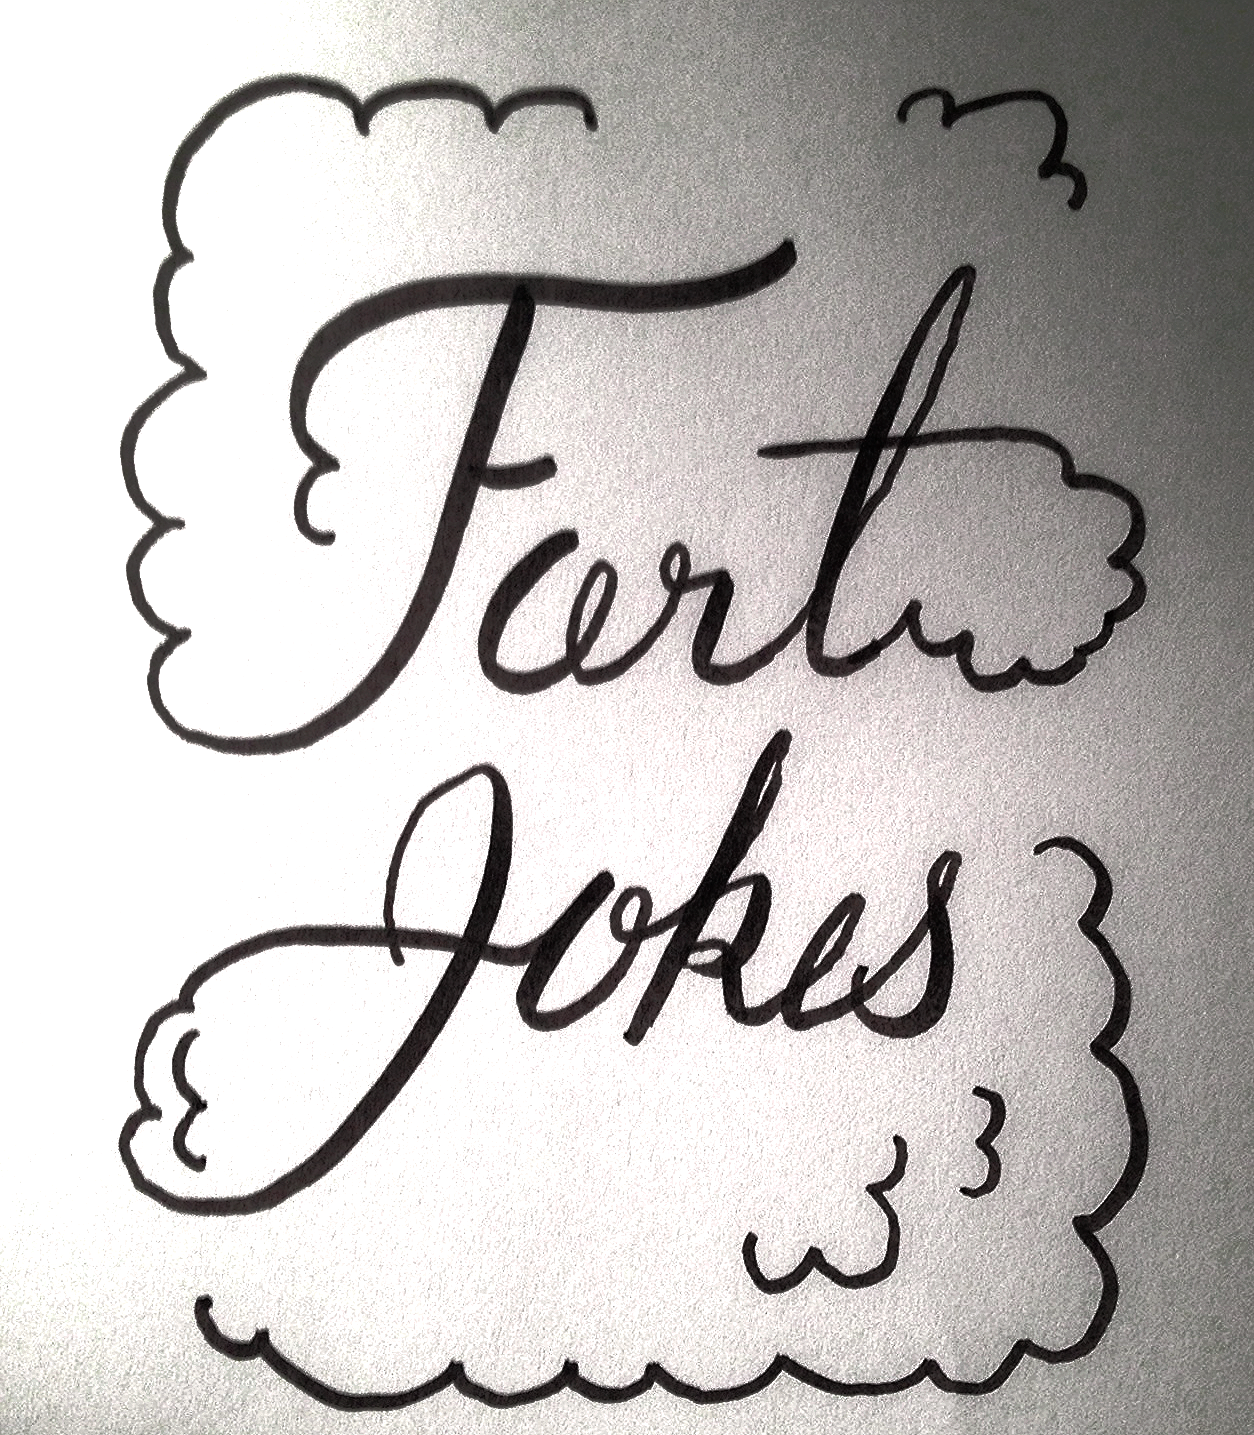 Fart
Jokes